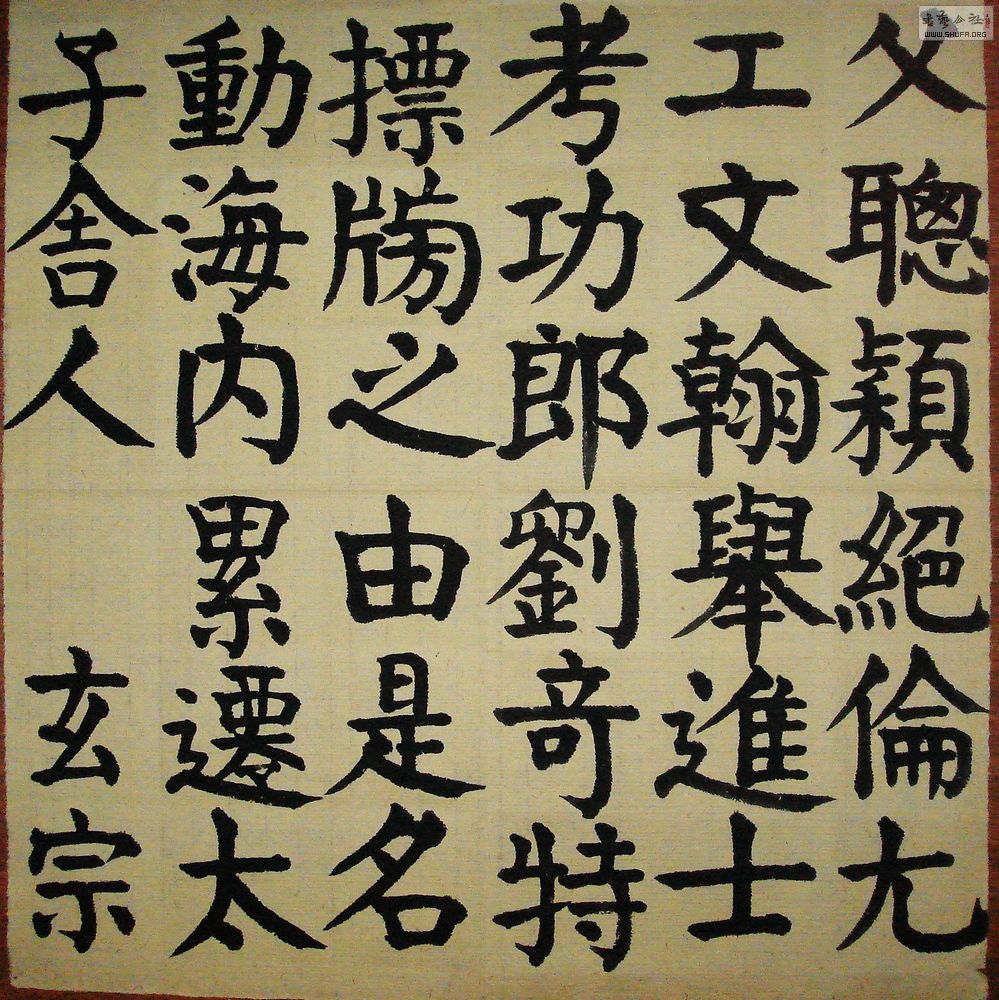 父聰穎絕倫尤
工文翰舉進士
考功郎劉奇特
摽牓之由是名
動海内 累遷太
子舍人 玄宗
書藝公社
WWW.SHUFA.ORG